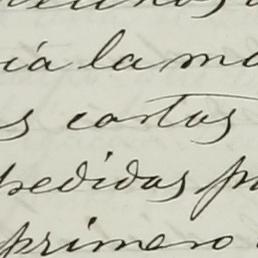 ía la
s cartas
pedidas
primero